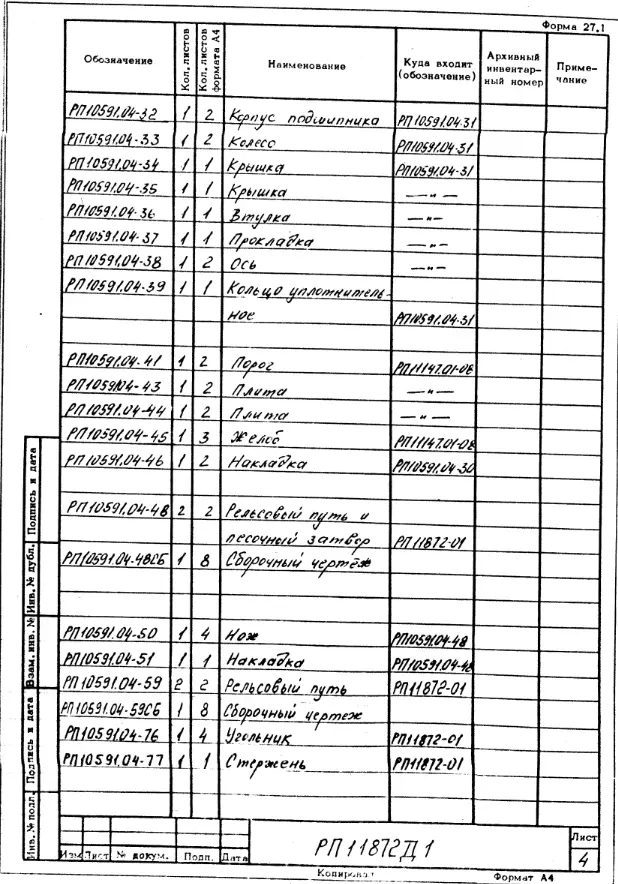 Форма 27.1
Обозначение Кол. листов Кол. листов формата А4 Наименование Куда входит (обозначение) Архивный инвентарный номер Примечание
РП10591.04-32 1 2 Корпус подшипника РП10591.04-31
РП10591.04-33 1 2 Колесо РП10591.04-31
РП10591.04-34 1 1 Крышка РП10591.04-31
РП10591.04-35 1 1 Крышка —〃—
РП10591.04-36 1 1 Втулка —〃—
РП10591.04-37 1 1 Прокладка —〃—
РП10591.04-38 1 2 Ось —〃—
РП10591.04-39 1 1 Кольцо уплотнитель-
ное РП10591.04-31
РП10591.04-41 1 2 Порог РП11147.01-08
РП10591.04-43 1 2 Плита —〃—
РП10591.04-44 1 2 Плита —〃—
РП10591.04-45 1 3 Желоб РП11147.01-08
РП10591.04-46 1 2 Накладка РП10591.04-30
РП10591.04-48 2 2 Рельсовый путь и
песочный затвор РП11872-01
РП10591.04-48СБ 1 8 Сборочный чертёж
РП10591.04-50 1 4 Нож РП10591.04-48
РП10591.04-51 1 1 Накладка РП10591.04-48
РП10591.04-59 2 2 Рельсовый путь РП11872-01
РП10591.04-59СБ 1 8 Сборочный чертеж
РП10591.04-76 1 4 Угольник РП11872-01
РП10591.04-77 1 1 Стержень РП11872-01
Инв. № подл. Подпись и дата Взам. инв. № Инв. № дубл. Подпись и дата
Изм Лист № докум. Подп. Дата
РП11872Д1
Лист
4
Копировал Формат А4